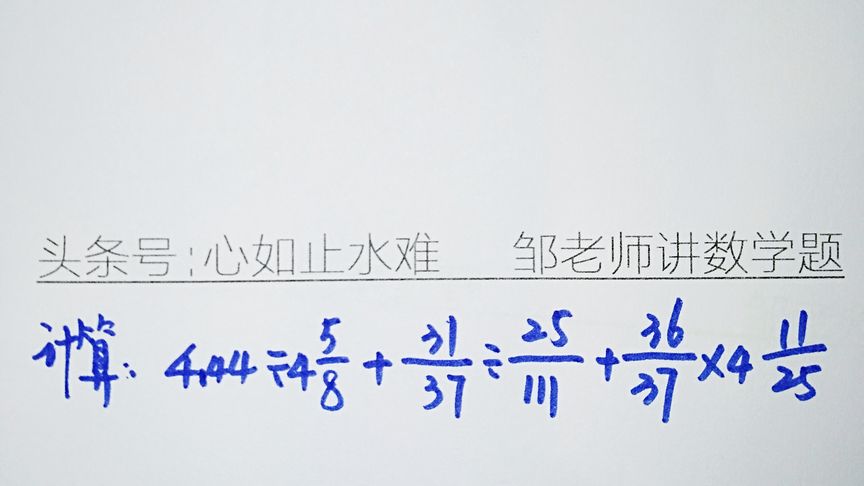 头条号:心如止水难 邹老师讲数学题
计算: 4.44÷4 5/8 + 31/37 ÷ 25/111 + 36/37 × 4 11/25